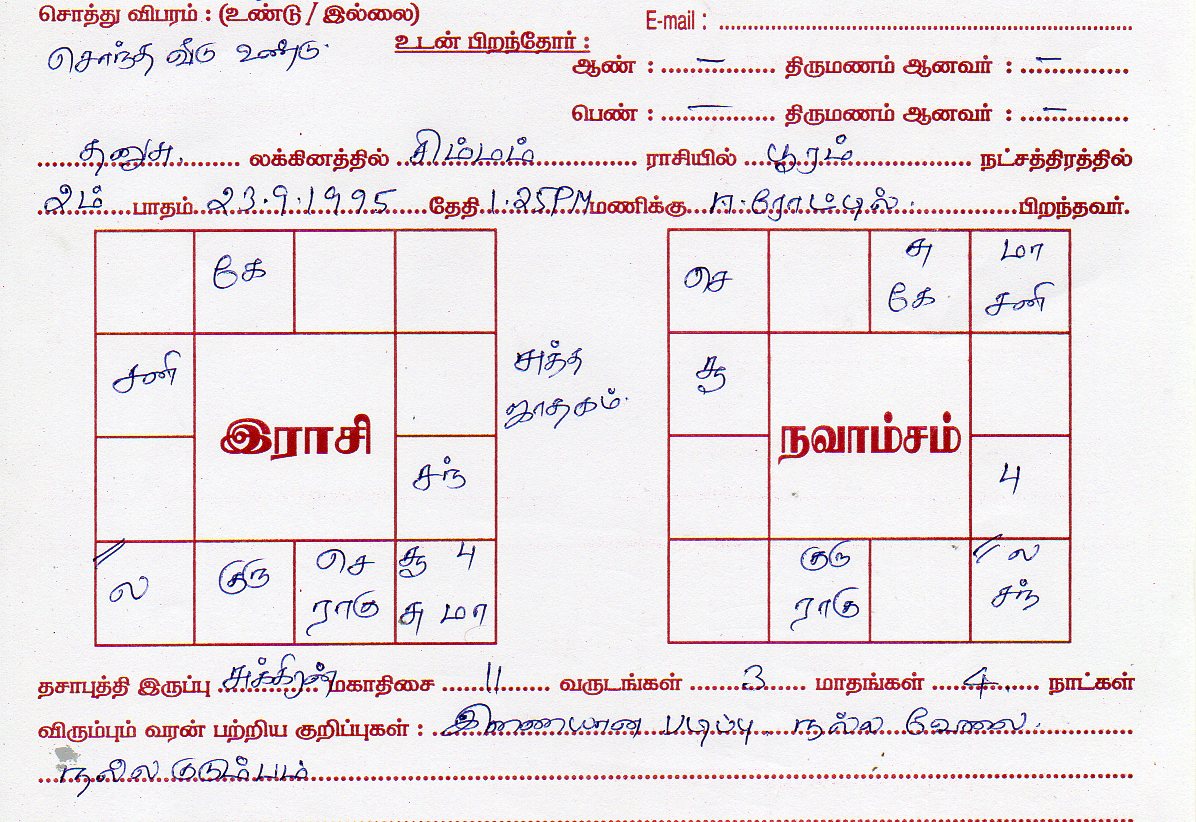 சொத்து விபரம் : (உண்டு / இல்லை)
E-mail : ........................
சொந்த வீடு உண்டு.
உடன் பிறந்தோர் :
ஆண் : — திருமணம் ஆனவர் : —
பெண் : — திருமணம் ஆனவர் : —
தனுசு லக்கினத்தில் சிம்மம் ராசியில் பூரம் நட்சத்திரத்தில்
2ம் பாதம் 23.9.1995 தேதி 1.25PM மணிக்கு ஈரோட்டில் பிறந்தவர்.
கே
சனி
இராசி
சந்
ல குரு செ ராகு சூ பு சு மா
சுத்த
ஜாதகம்.
செ சு கே மா சனி
சூ
நவாம்சம்
பு
குரு ராகு ல சந்
தசாபுத்தி இருப்பு சுக்கிரன் மகாதிசை 11 வருடங்கள் 3 மாதங்கள் 4 நாட்கள்
விரும்பும் வரன் பற்றிய குறிப்புகள் : இணையான படிப்பு, நல்ல வேலை.
நல்ல குடும்பம்